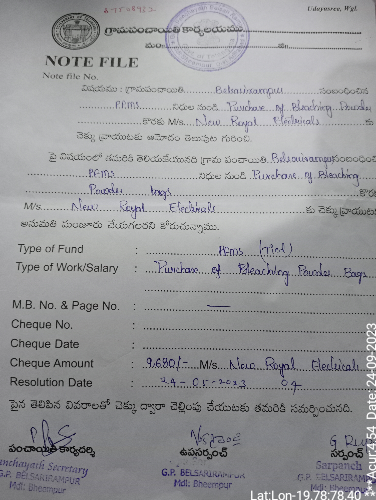 Udayasree, Wgl.
గ్రామపంచాయతి కార్యాలయము
మం
జి॥
NOTE FILE
Note file No.
విషయము : గ్రామపంచాయితి Belsarirampur సంబంధించిన
PFMS నిధుల నుండి Purchase of Bleaching Powder
కొరకు M/s New Royal Electricals కు
చెక్కు వ్రాయుటకు ఆమోదం తెలుపుట గురించి.
పై విషయంలో తమరికి తెలియజేయునది గ్రామ పంచాయితి Belsarirampur సంబంధించిన
PFMS నిధుల నుండి Purchase of Bleaching
Powder bags కొరకు
M/s New Royal Electricals కు చెక్కు వ్రాయుటకు
అనుమతి మంజూరు చేయగలరని కోరుచున్నాము.
Type of Fund : PFMS
Type of Work/Salary : Purchase of Bleaching Powder Bags
M.B. No. & Page No. : —
Cheque No. :
Cheque Date :
Cheque Amount : 9,680/- M/s New Royal Electricals
Resolution Date : 24-05-2023
పైన తెలిపిన వివరాలతో చెక్కు ద్వారా చెల్లింపు చేయుటకు తమరికి సమర్పించనది.
పంచాయితి కార్యదర్శి ఉపసర్పంచ్ సర్పంచ్
Panchayath Secretary
G.P. BELSARIRAMPUR
Mdl: Bheempur
G.P. BELSARIRAMPUR
Mdl: Bheempur
Sarpanch
G.P. BELSARIRAMPUR
Mdl: Bheempur
Lat:Lon-19.78:78.40
Acur:4.54 Date:24-09-2023